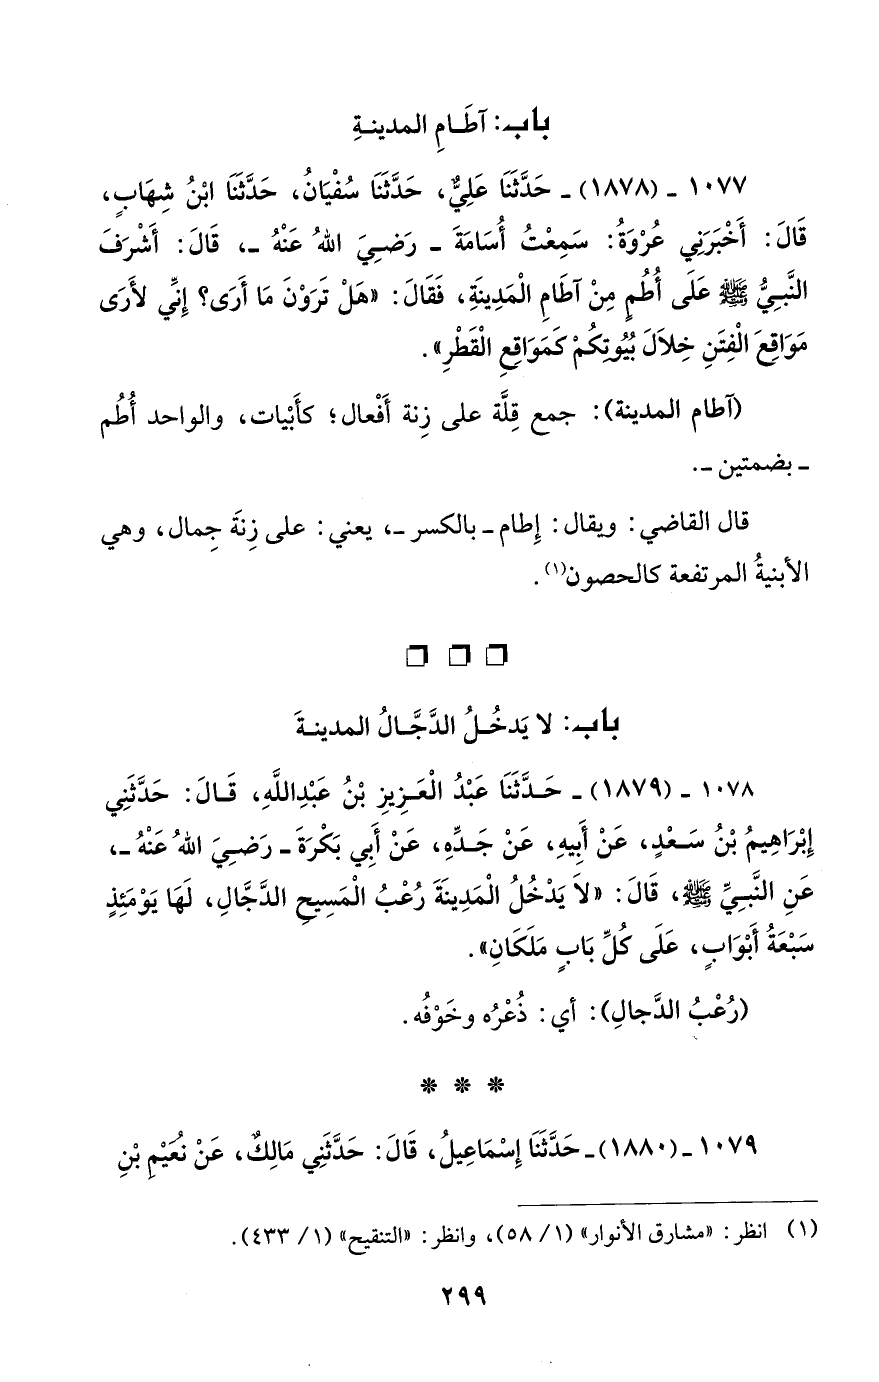 باب: آطَامِ المدينةِ
١٠٧٧ ـ (١٨٧٨) ـ حَدَّثَنَا عَلِيٌّ، حَدَّثَنَا سُفْيَانُ، حَدَّثَنَا ابْنُ شِهَابٍ،
قَالَ: أَخْبَرَنِي عُرْوَةُ: سَمِعْتُ أُسَامَةَ ـ رَضيَ اللهُ عَنْهُ ـ، قَالَ: أَشْرَفَ
النَّبِيُّ ﷺ عَلَى أُطُمٍ مِنْ آطَامِ الْمَدِينَةِ، فَقَالَ: «هَلْ تَرَوْنَ مَا أَرَى؟ إِنِّي لأَرَى
مَوَاقِعَ الْفِتَنِ خِلاَلَ بُيُوتِكُمْ كَمَوَاقِعِ الْقَطْرِ».
(آطام المدينة): جمع قِلَّة على زِنة أَفْعال؛ كأَبْيات، والواحد أُطُم
ـ بضمتين ـ.
قال القاضي: ويقال: إِطام ـ بالكسر ـ، يعني: على زِنَةَ جِمال، وهي
الأبنيةُ المرتفعة كالحصون(١).
باب: لا يَدخُلُ الدَّجَّالُ المدينةَ
١٠٧٨ ـ (١٨٧٩) ـ حَدَّثَنَا عَبْدُ الْعَزِيزِ بْنُ عَبْدِاللَّهِ، قَالَ: حَدَّثَنِي
إِبْرَاهِيمُ بْنُ سَعْدٍ، عَنْ أَبِيهِ، عَنْ جَدِّهِ، عَنْ أَبِي بَكْرَةَ ـ رَضيَ اللهُ عَنْهُ ـ،
عَنِ النَّبِيِّ ﷺ، قَالَ: «لاَ يَدْخُلُ الْمَدِينَةَ رُعْبُ الْمَسِيحِ الدَّجَّالِ، لَهَا يَوْمَئِذٍ
سَبْعَةُ أَبْوَابٍ، عَلَى كُلِّ بَابٍ مَلَكَانِ».
(رُعْبُ الدَّجالِ): أي: ذُعْرُه وخَوْفُه.
* * *
١٠٧٩ ـ (١٨٨٠) ـ حَدَّثَنَا إِسْمَاعِيلُ، قَالَ: حَدَّثَنِي مَالِكٌ، عَنْ نُعَيْمِ بْنِ
(١) انظر: «مشارق الأنوار» (١/ ٥٨)، وانظر: «التنقيح» (١/ ٤٣٣).
٢٩٩